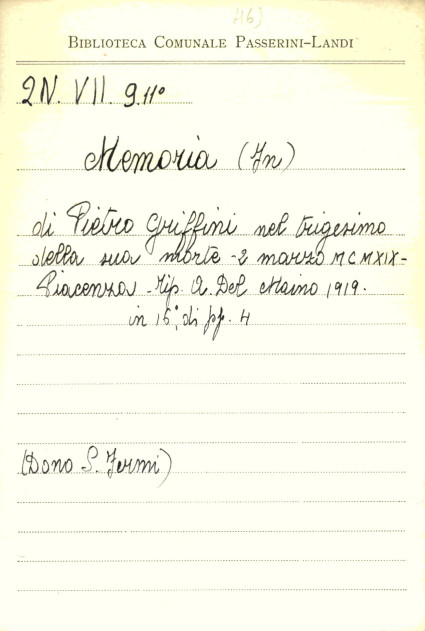 46)
BIBLIOTECA COMUNALE PASSERINI-LANDI
2N. VII. 9.11º
Memoria (In)
di Pietro Griffini nel trigesimo
della sua morte - 2 marzo MCMXIX -
Piacenza - Tip. A. Del Maino 1919.
in 16º, di pp. 4
(Dono S. Fermi)